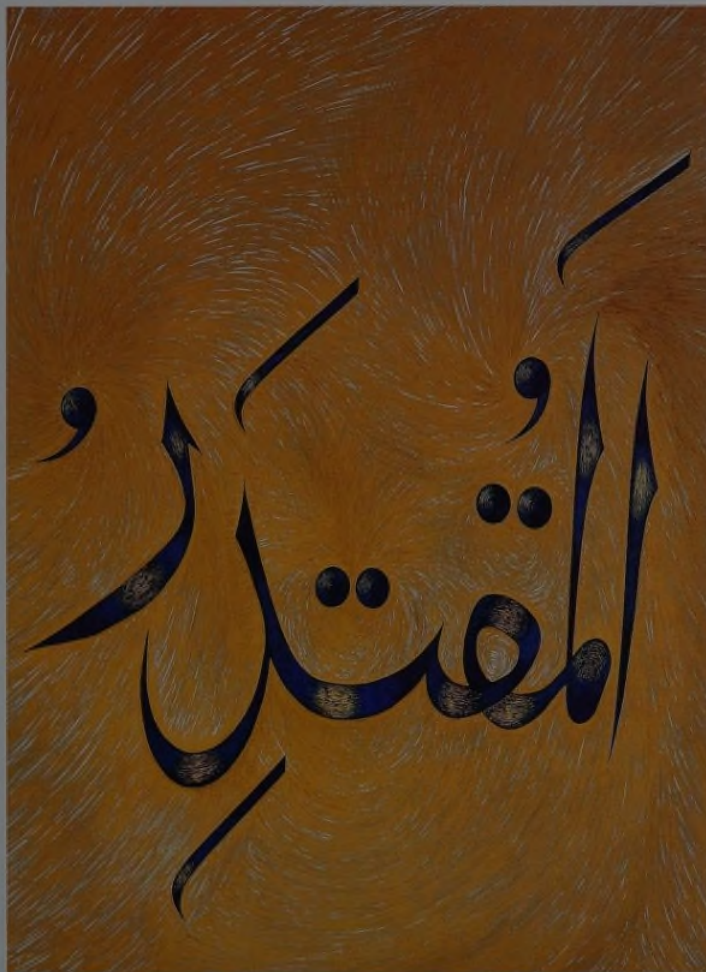 اَلمُقتَدِرُ